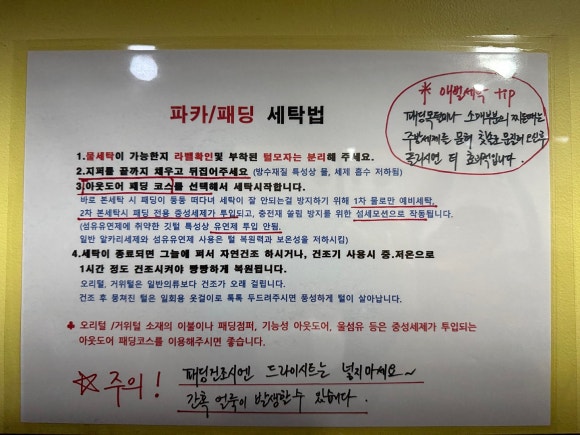 파카/패딩 세탁법
* 애벌세탁 tip
패딩목뒷이나 소매부분의 찌든때는
주방세제를 묻혀 칫솔로 문질러 주신후
돌리시면 더 효과적입니다.
1.물세탁이 가능한지 라벨확인및 부착된 털모자는 분리해 주세요.
2.지퍼를 끝까지 채우고 뒤집어주세요 (방수재질 특성상 물, 세제 흡수 저하됨)
3.아웃도어 패딩 코스를 선택해서 세탁시작합니다.
바로 본세탁 시 패딩이 동동 떠다녀 세탁이 잘 안되는걸 방지하기 위해 1차 물로만 예비세탁,
2차 본세탁시 패딩 전용 중성세제가 투입되고, 충전재 쏠림 방지를 위한 섬세모션으로 작동됩니다.
(섬유유연제에 취약한 깃털 특성상 유연제 투입 안됨,
일반 알카리세제와 섬유유연제 사용은 털 복원력과 보온성을 저하시킴)
4.세탁이 종료되면 그늘에 펴서 자연건조 하시거나, 건조기 사용시 중.저온으로
1시간 정도 건조시켜야 빵빵하게 복원됩니다.
오리털, 거위털은 일반의류보다 건조가 오래 걸립니다.
건조 후 뭉쳐진 털은 일회용 옷걸이로 톡톡 두드려주시면 풍성하게 털이 살아납니다.
♣ 오리털 /거위털 소재의 이불이나 패딩점퍼, 기능성 아웃도어, 울섬유 등은 중성세제가 투입되는
아웃도어 패딩코스를 이용해주시면 좋습니다.
☆ 주의! 패딩건조시엔 드라이시트는 넣지마세요~
간혹 얼룩이 발생할 수 있습니다.